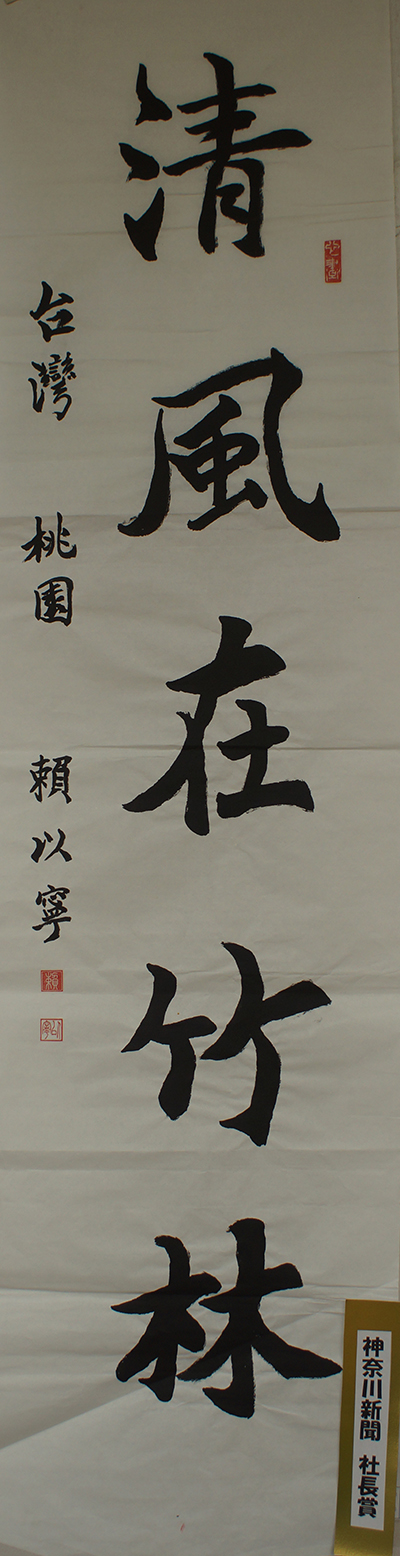 清風在竹林
台灣 桃園 賴以寧
賴
以寧
神奈川新聞 社長賞